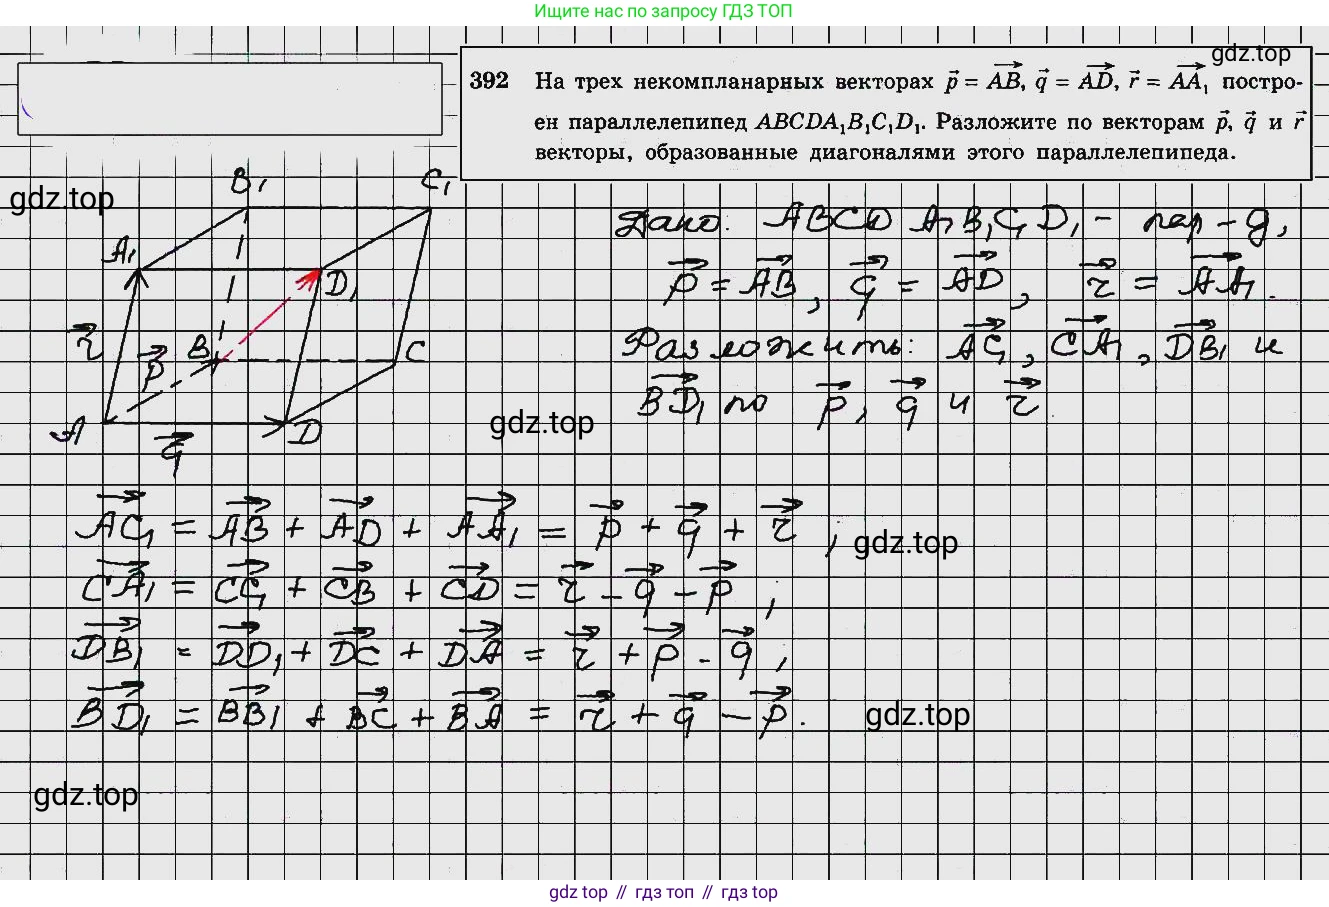 Ищите нас по запросу ГДЗ ТОП
gdz.top
392 На трех некомпланарных векторах p⃗ = AB⃗, q⃗ = AD⃗, r⃗ = AA₁⃗ постро-
ен параллелепипед ABCDA₁B₁C₁D₁. Разложите по векторам p⃗, q⃗ и r⃗
векторы, образованные диагоналями этого параллелепипеда.
gdz.top
B₁ C₁
A₁ D₁
r⃗ p⃗ B C
A q⃗ D
Дано: ABCD A₁B₁C₁D₁ – пар-д,
p⃗ = AB⃗, q⃗ = AD⃗, r⃗ = AA₁⃗.
Разложить: AC₁⃗, CA₁⃗, DB₁⃗ и
BD₁⃗ по p⃗, q⃗ и r⃗
gdz.top
AC₁⃗ = AB⃗ + AD⃗ + AA₁⃗ = p⃗ + q⃗ + r⃗,
gdz.top
CA₁⃗ = CC₁⃗ + CB⃗ + CD⃗ = r⃗ – q⃗ – p⃗;
DB₁⃗ = DD₁⃗ + DC⃗ + DA⃗ = r⃗ + p⃗ – q⃗;
BD₁⃗ = BB₁⃗ + BC⃗ + BA⃗ = r⃗ + q⃗ – p⃗.
gdz.top
gdz.top
gdz top // гдз топ // gdz top